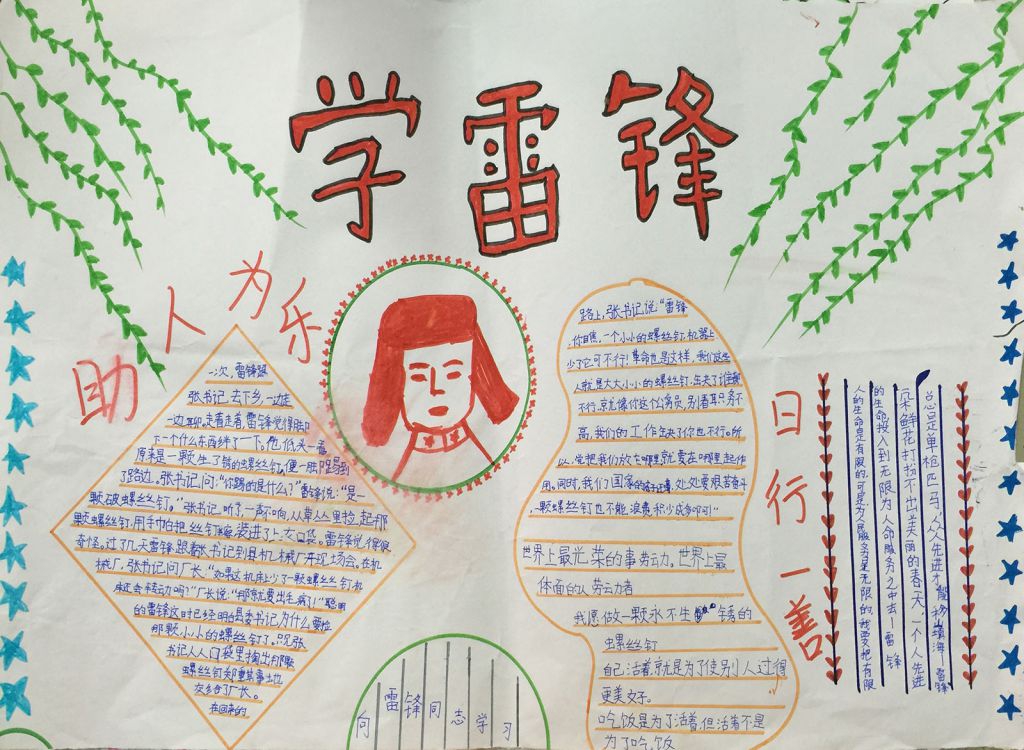 学雷锋
助人为乐
一次,雷锋跟
张书记去下乡,一边走
一边聊,走着走着,雷锋觉得脚
下一个什么东西绊了一下。他低头一看
原来是一颗生了锈的螺丝钉,便一脚踢到
了路边。张书记问:“你踢的是什么?”雷锋说:“是一
颗破螺丝钉。”张书记听了一声不响,从草丛里捡起那
颗螺丝钉,用手怕把丝钉擦 装进了上衣口袋。雷锋觉得很
奇怪。过了几天雷锋跟着张书记到县机械厂开现场会。在机
械厂,张书记问厂长“如果这机床少了一颗螺丝钉机
就会转动吗?”厂长说:“那就要出毛病了!”聪明
的雷锋这时已经明白县委书记为什么要捡
那颗小小的螺丝钉了。只见张
书记从口袋里掏出那颗
螺丝钉郑重其事地
交给了厂长。
在回来的
路上,张书记说:“雷锋
,你瞧,一个小小的螺丝钉,机器上
少了它可不行!革命也是这样,我们这些
人就是大大小小的螺丝钉,缺了谁都
不行。就像你这个公务员,别看职务不
高,我们的工作缺了你也不行。所
以,党把我们放在哪里就要在哪里起作
用。同时,我们国家的底子还薄,处处要艰苦奋斗
,一颗螺丝钉也不能浪费,积少成多呵!”
世界上最光荣的事劳动。世界上最
体面的人劳动者
我愿做一颗永不生锈的
螺丝钉
自己活着,就是为了使别人过得
更美好。
吃饭是为了活着,但活着不是
为了吃饭
向雷锋同志学习
日行一善
总是单枪匹马,众人先进才能移山填海—雷锋
朵鲜花打扮不出美丽的春天,一个人先进
的生命投入到无限为人命服务之中去—雷锋
人的生命是有限的,可是,为人民服务是无限的,我要把有限